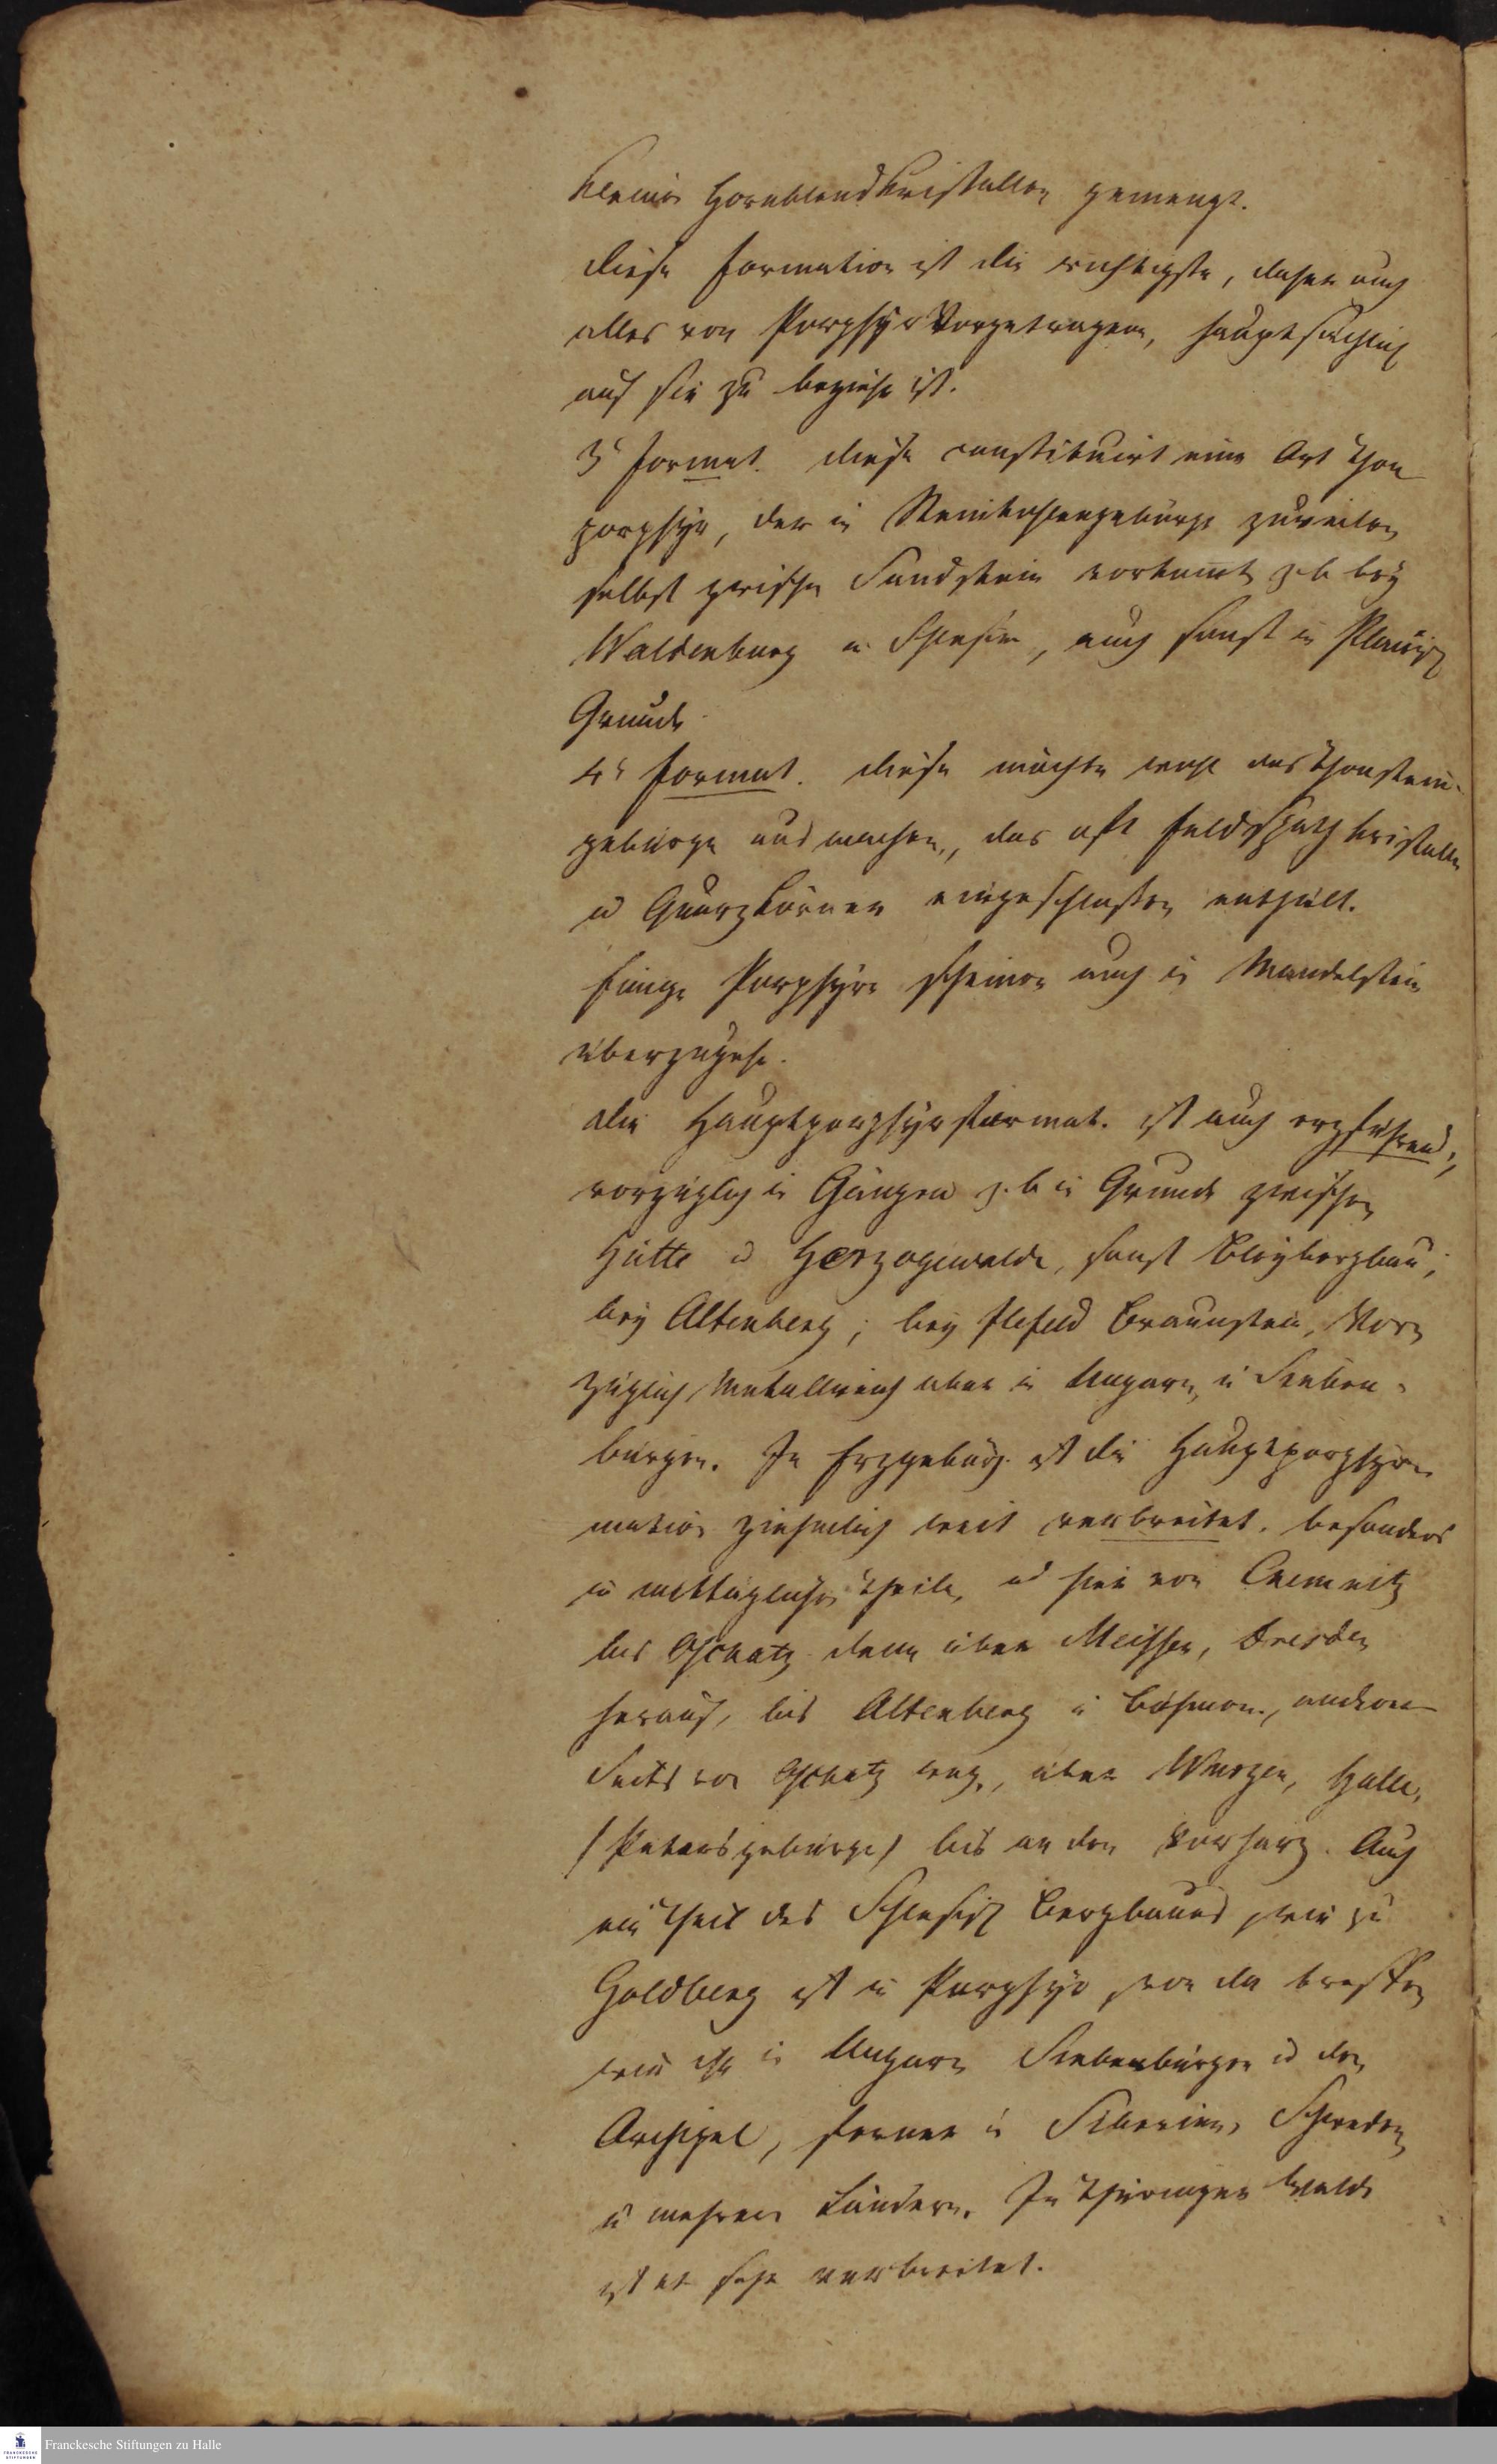 kleine Hornblendkristallen gemengt.
diese Formation ist die wichtigste, daher auch
alles von Porphyr Vorgetragene, hauptsächlich
auf sie zu beziehn ist.
3e Format. diese constituirt eine Art Thon
porphyr, der in Steinkohlengebürge zuweilen
selbst zwischn Sandstein vorkommt z.b bey
Waldenburg in Schlesien, auch sonst in Plauisch
Grunde.
4e Format. diese möchte wohl das Thonstein-
gebürge ausmachen, das oft Feldspathkristalle
u Quarzkörner eingeschlossen enthält.
Einige Porphyre scheinen auch in Mandelstein
überzugehn.
die Hauptporphyrformat. ist auch erzführend;
vorzüglich in Gängen z.b in Grunde zwischen
Hütte u Herzogswalde, sonst Bleybergbau;
bey Altenberg; bey Ilefeld Braunstein, Vor
züglich Metallreich aber in Ungarn, in Sieben-
bürgen. In Erzgebürg ist die Hauptporphyrfor
mation ziehmlich weit verbreitet. besonders
in mittäglichn Theile, u hier von Chemnitz
bis Oschatz dann über Meissen, Dresden
herauf, bis Altenberg in Böhmen, andrer
Seits von Oschatz weg, über Wurzen, Halle,
/Petersgebürge/ bis an den Vorharz. Auch
ein Theil des Schlesisch Bergbaues, wie zu
Goldberg ist in Porphyr, von da treffen
wir ihn in Ungarn Siebenbürgen u den
Archipel, ferner in Siberien, Schweden
u mehrern Ländern. In Thüringer Walde
ist er sehr verbreitet.
Franckesche Stiftungen zu Halle